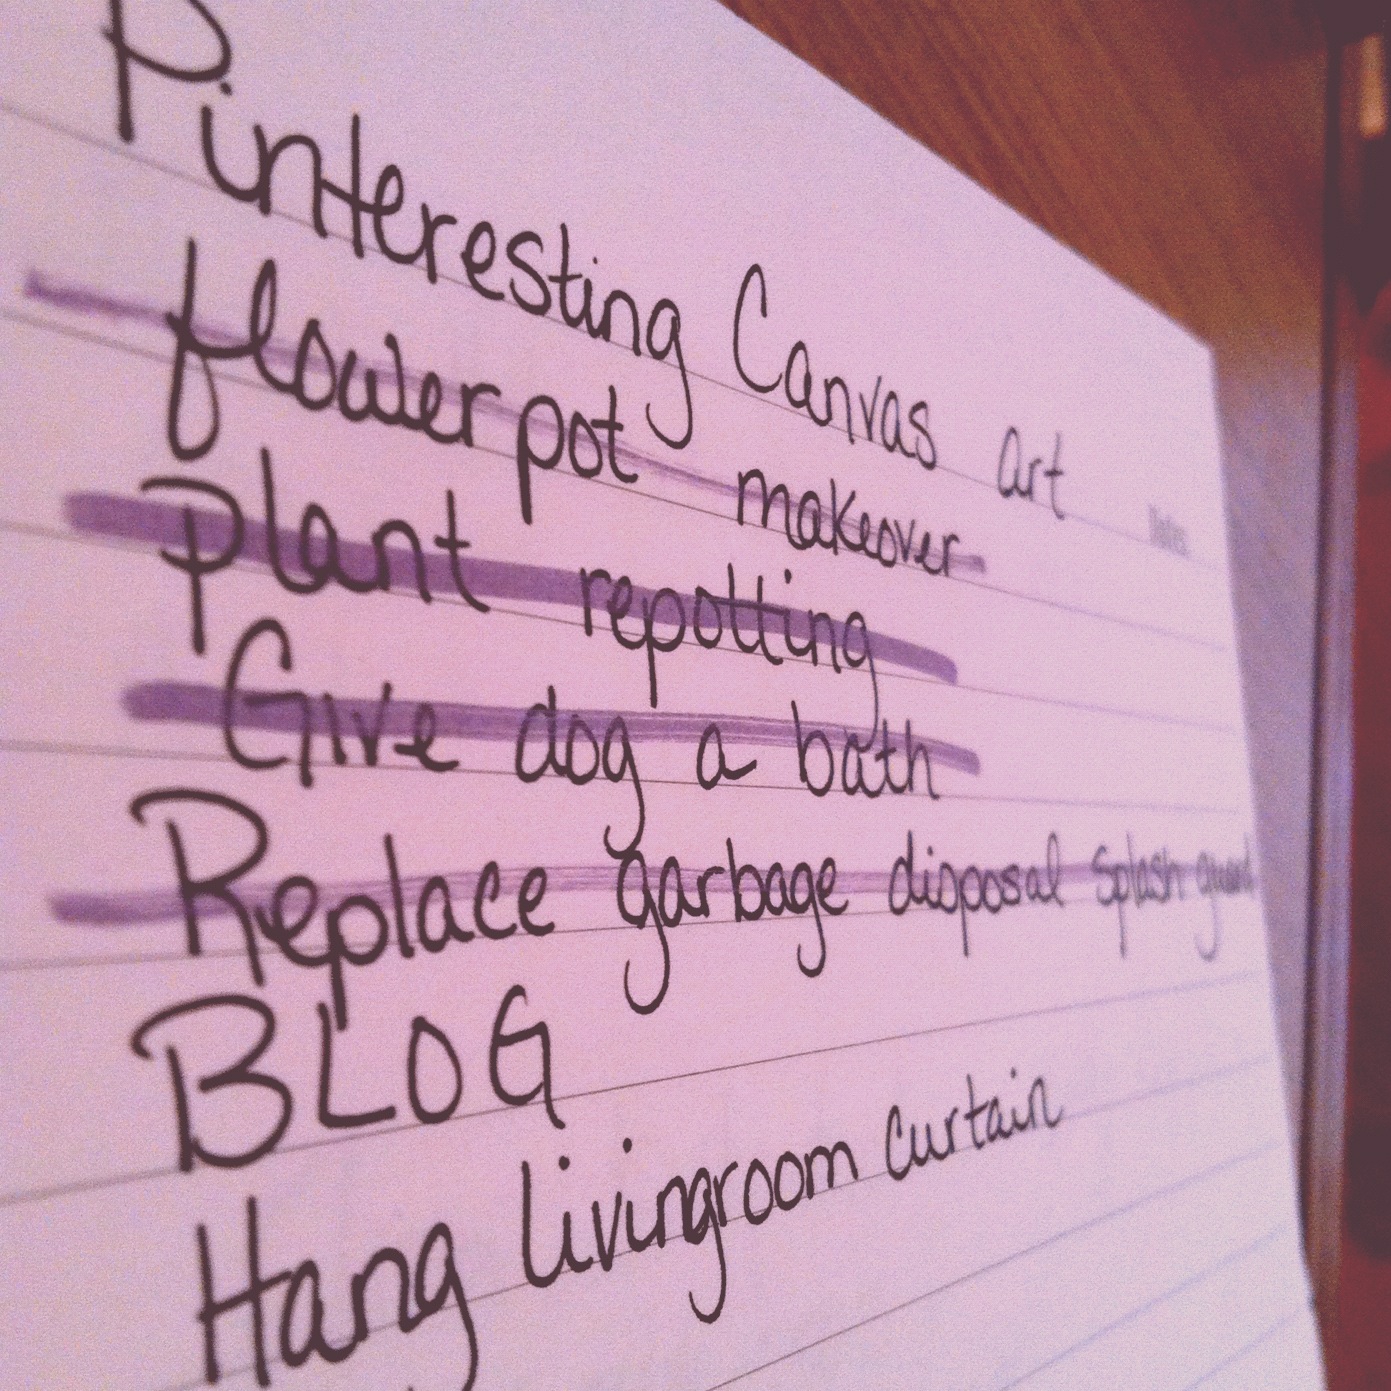 Pinteresting Canvas art
flower pot makeover
plant repotting
Give dog a bath
Replace garbage disposal splash guard
BLOG
Hang livingroom curtain